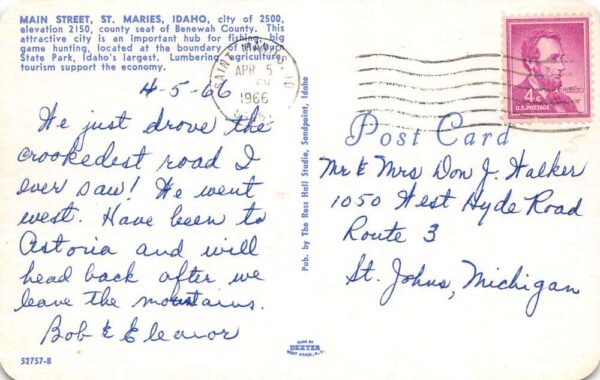 MAIN STREET, ST. MARIES, IDAHO, city of 2500,
elevation 2150, county seat of Benewah County. This
attractive city is an important hub for fishing, big
game hunting, located at the boundary of Heyburn
State Park, Idaho's largest. Lumbering, agriculture,
tourism support the economy.
SAINT MARIES, ID
APR 5
PM
1966
4¢
U.S. POSTAGE
4-5-66
We just drove the
crookedest road I
ever saw! We went
west. Have been to
Astoria and will
head back after we
leave the mountains.
Bob & Eleanor
52757-B
Pub. by The Ross Hall Studio, Sandpoint, Idaho
Post Card
Mr & Mrs Don J. Walker
1050 West Hyde Road
Route 3
St. Johns, Michigan
MADE BY
DEXTER
WEST NYACK, N.Y.